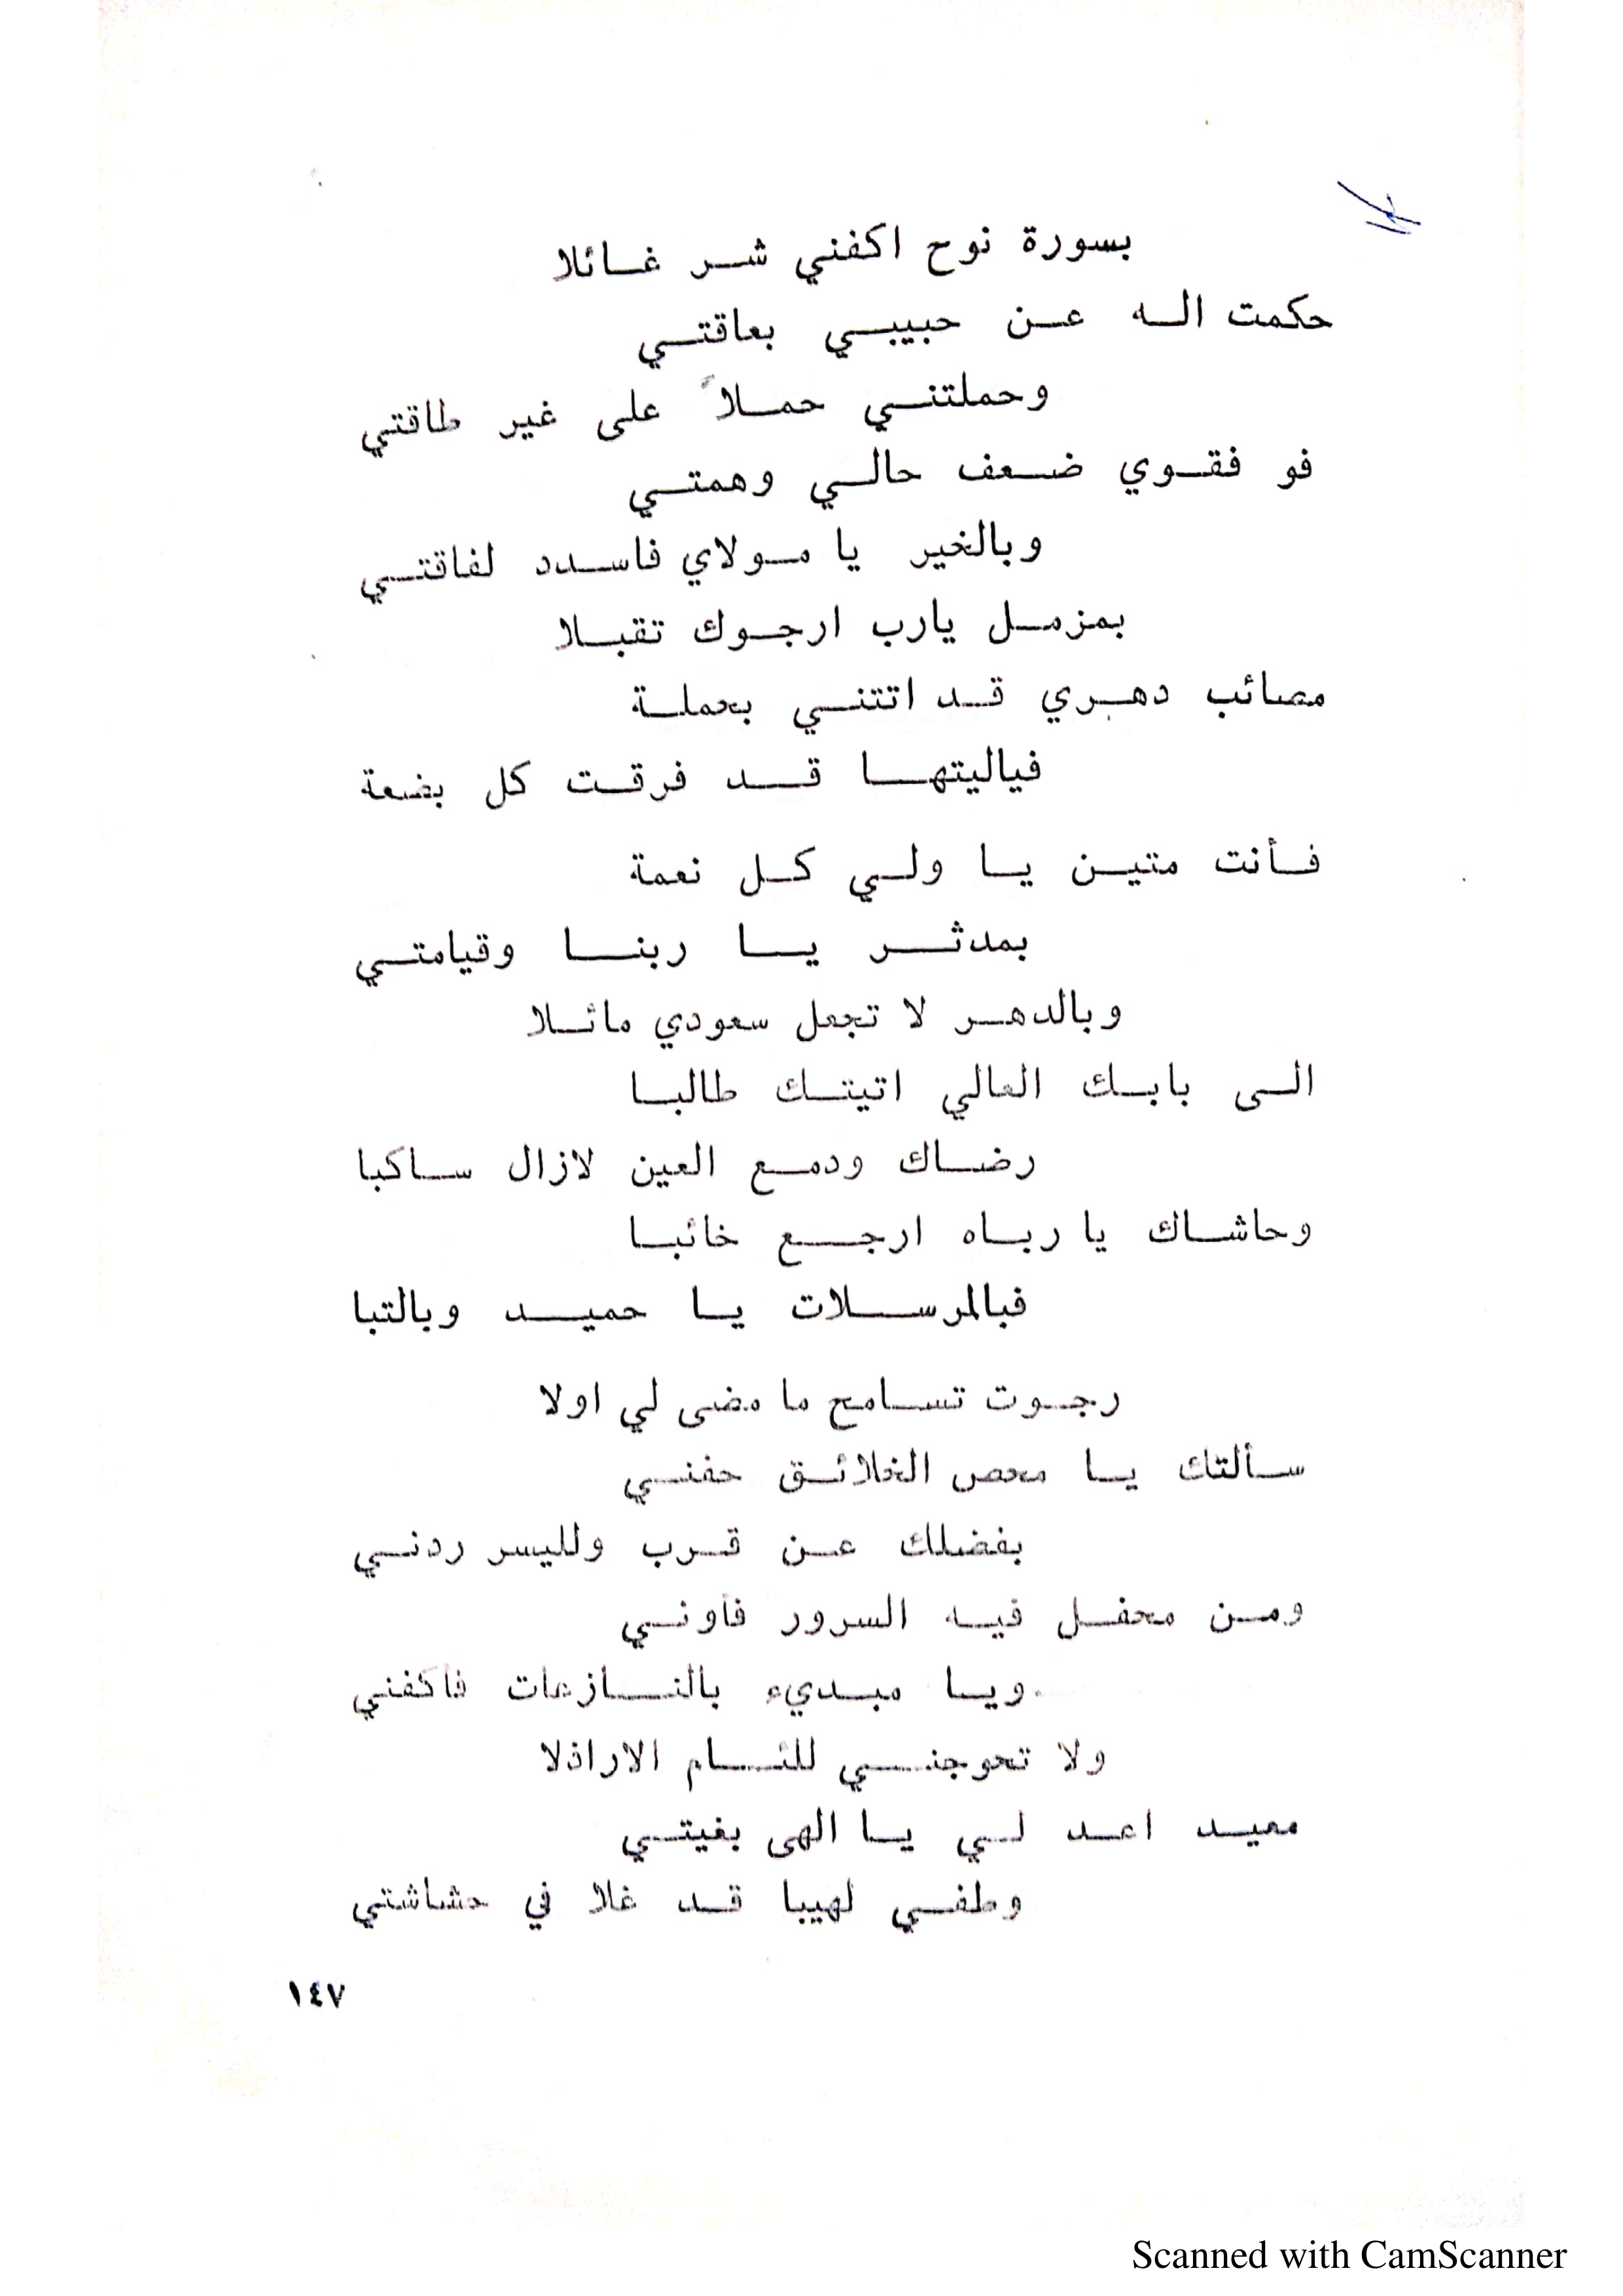 بسورة نوح اكفني شر غائلا
حكمت اله عن حبيبي بعاقتي
وحملتني حملاً على غير طاقتي
فو فقوي ضعف حالي وهمتي
وبالخير يا مولاي فاسدد لفاقتي
بمزمل يارب ارجوك تقبلا
مصائب دهري قد اتتني بحملة
فياليتها قد فرقت كل بضعة
فأنت متين يا ولي كل نعمة
بمدثر يا ربنا وقيامتي
وبالدهر لا تجعل سعودي مائلا
الى بابك العالي اتيتك طالبا
رضاك ودمع العين لازال ساكبا
وحاشاك يا رباه ارجع خائبا
فبالمرسلات يا حميد وبالتبا
رجوت تسامح ما مضى لي اولا
سألتك يا محص الخلائق حفني
بفضلك عن قرب ولليسر ردني
ومن محفل فيه السرور فاوني
ويا مبديء بالنازعات فاكفني
ولا تحوجني للئام الاراذلا
معيد اعد لي يا الهى بغيتي
وطفي لهيبا قد غلا في حشاشتي
١٤٧
Scanned with CamScanner